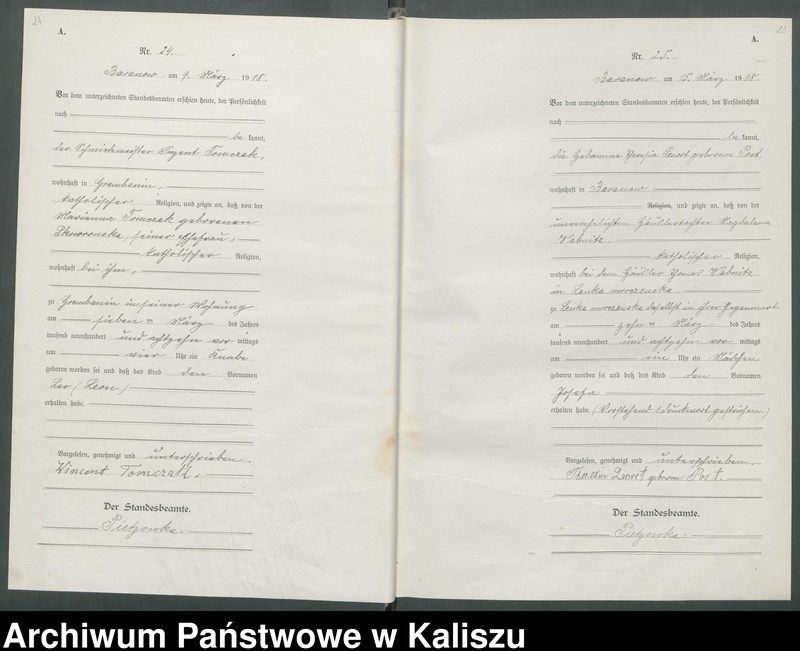 24
A.
Nr. 24.
Baranow am 9. März 1918.
Vor dem unterzeichneten Standesbeamten erschien heute, der Persönlichkeit
nach
be kannt,
der Schmiedemeister Vinzent Tomczak,
wohnhaft in Grembanin,
katholischer Religion, und zeigte an, daß von der
Marianna Tomczak geborenen
Skowronska, seiner Ehefrau,
katholischer Religion,
wohnhaft bei ihm,
zu Grembanin in seiner Wohnung
am sieben ten März des Jahres
tausend neunhundert und achtzehn vor mittags
um vier Uhr ein Knabe
geboren worden sei und daß das Kind den Vornamen
Leo (Leon)
erhalten habe.
Vorgelesen, genehmigt und unterschrieben.
Wincent Tomczak.
Der Standesbeamte.
Pietzonka.
25
A.
Nr. 25.
Baranow am 15. März 1918.
Vor dem unterzeichneten Standesbeamten erschien heute, der Persönlichkeit
nach
be kannt,
die Hebamme geborene Post,
wohnhaft in Baranow
Religion, und zeigte an, daß von der
unverehelichten Häuslertochter Magdalena
Wabnitz,
katholischer Religion,
wohnhaft bei dem Häusler Thomas Wabnitz
in Lenka mroczenska,
zu Lenka mroczenska daselbst in ihrer Gegenwart
am zehn ten März des Jahres
tausend neunhundert und achtzehn vor mittags
um ein Uhr ein Mädchen
geboren worden sei und daß das Kind den Vornamen
Josefa
erhalten habe. (Vorstehend 1 Druckwort gestrichen)
Vorgelesen, genehmigt und unterschrieben.
geborene Post.
Der Standesbeamte.
Pietzonka.
Archiwum Państwowe w Kaliszu